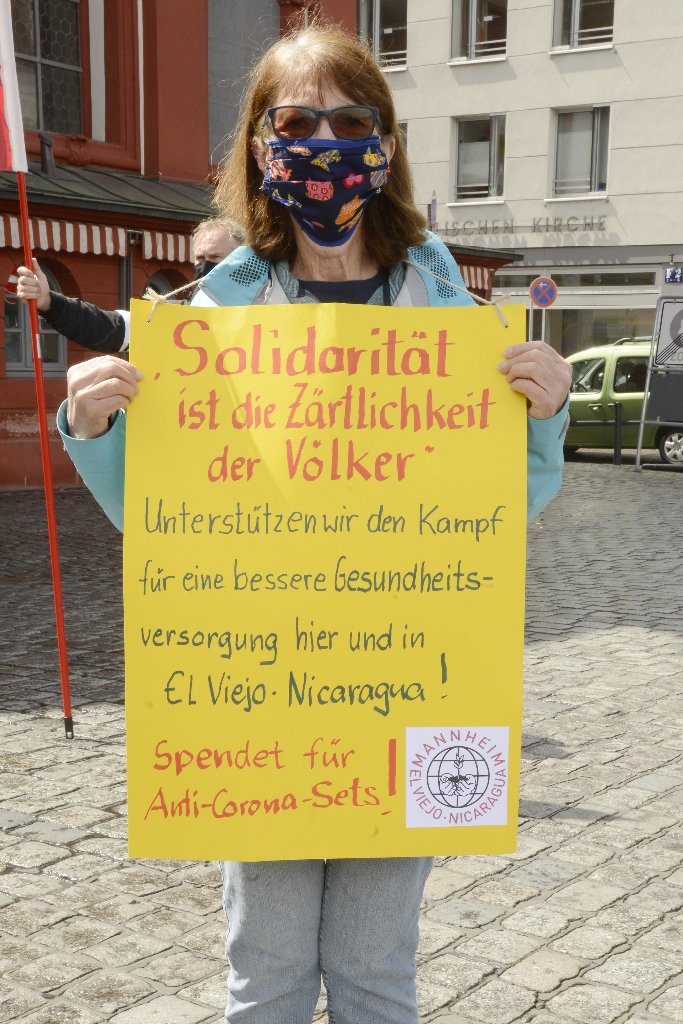 ISCHEN KIRCHE
F 2
„Solidarität
ist die Zärtlichkeit
der Völker"
Unterstützen wir den Kampf
für eine bessere Gesundheits-
versorgung hier und in
El Viejo · Nicaragua!
Spendet für
Anti-Corona-Sets!
MANNHEIM
EL VIEJO · NICARAGUA